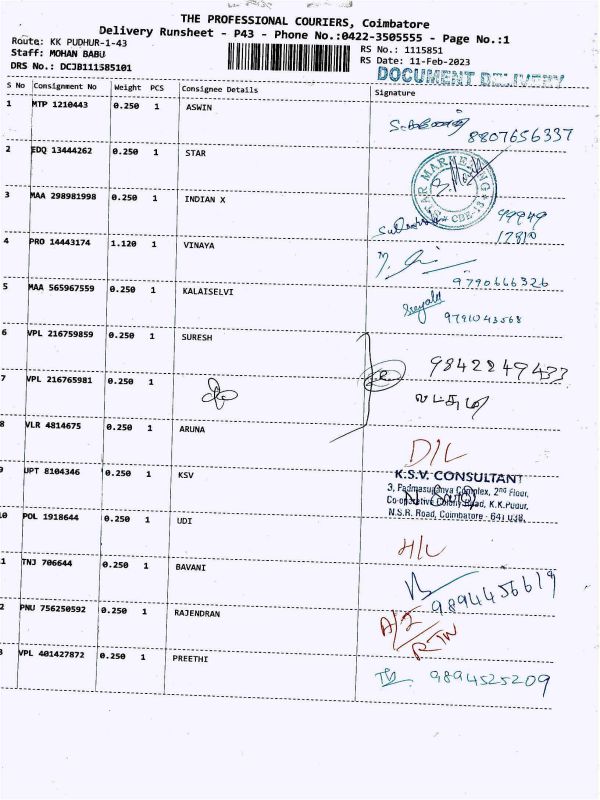 THE PROFESSIONAL COURIERS, Coimbatore
Delivery Runsheet - P43 - Phone No.:0422-3505555 - Page No.:1
Route: KK PUDHUR-1-43
Staff: MOHAN BABU
DRS No.: DCJB111585101
RS No.: 1115851
RS Date: 11-Feb-2023
DOCUMENT DELIVERY
S No Consignment No Weight PCS Consignee Details Signature
1 MTP 1210443 0.250 1 ASWIN
8807656337
2 EDQ 13444262 0.250 1 STAR
3 MAA 298981998 0.250 1 INDIAN X
CBE-13
99949
17810
4 PRO 14443174 1.120 1 VINAYA
9790666326
5 MAA 565967559 0.250 1 KALAISELVI
9791043568
6 VPL 216759859 0.250 1 SURESH
9842249433
7 VPL 216765981 0.250 1
8 VLR 4814675 0.250 1 ARUNA
D/L
9 UPT 8104346 0.250 1 KSV
K.S.V. CONSULTANT
3, Padmasuganya Complex, 2nd Floor,
Co-operative Colony Road, K.K.Pudur,
N.S.R. Road, Coimbatore - 641 038.
0 POL 1918644 0.250 1 UDI
H/L
1 TNJ 706644 0.250 1 BAVANI
9894456619
2 PNU 756250592 0.250 1 RAJENDRAN
RTN
3 VPL 401427872 0.250 1 PREETHI
9894525209